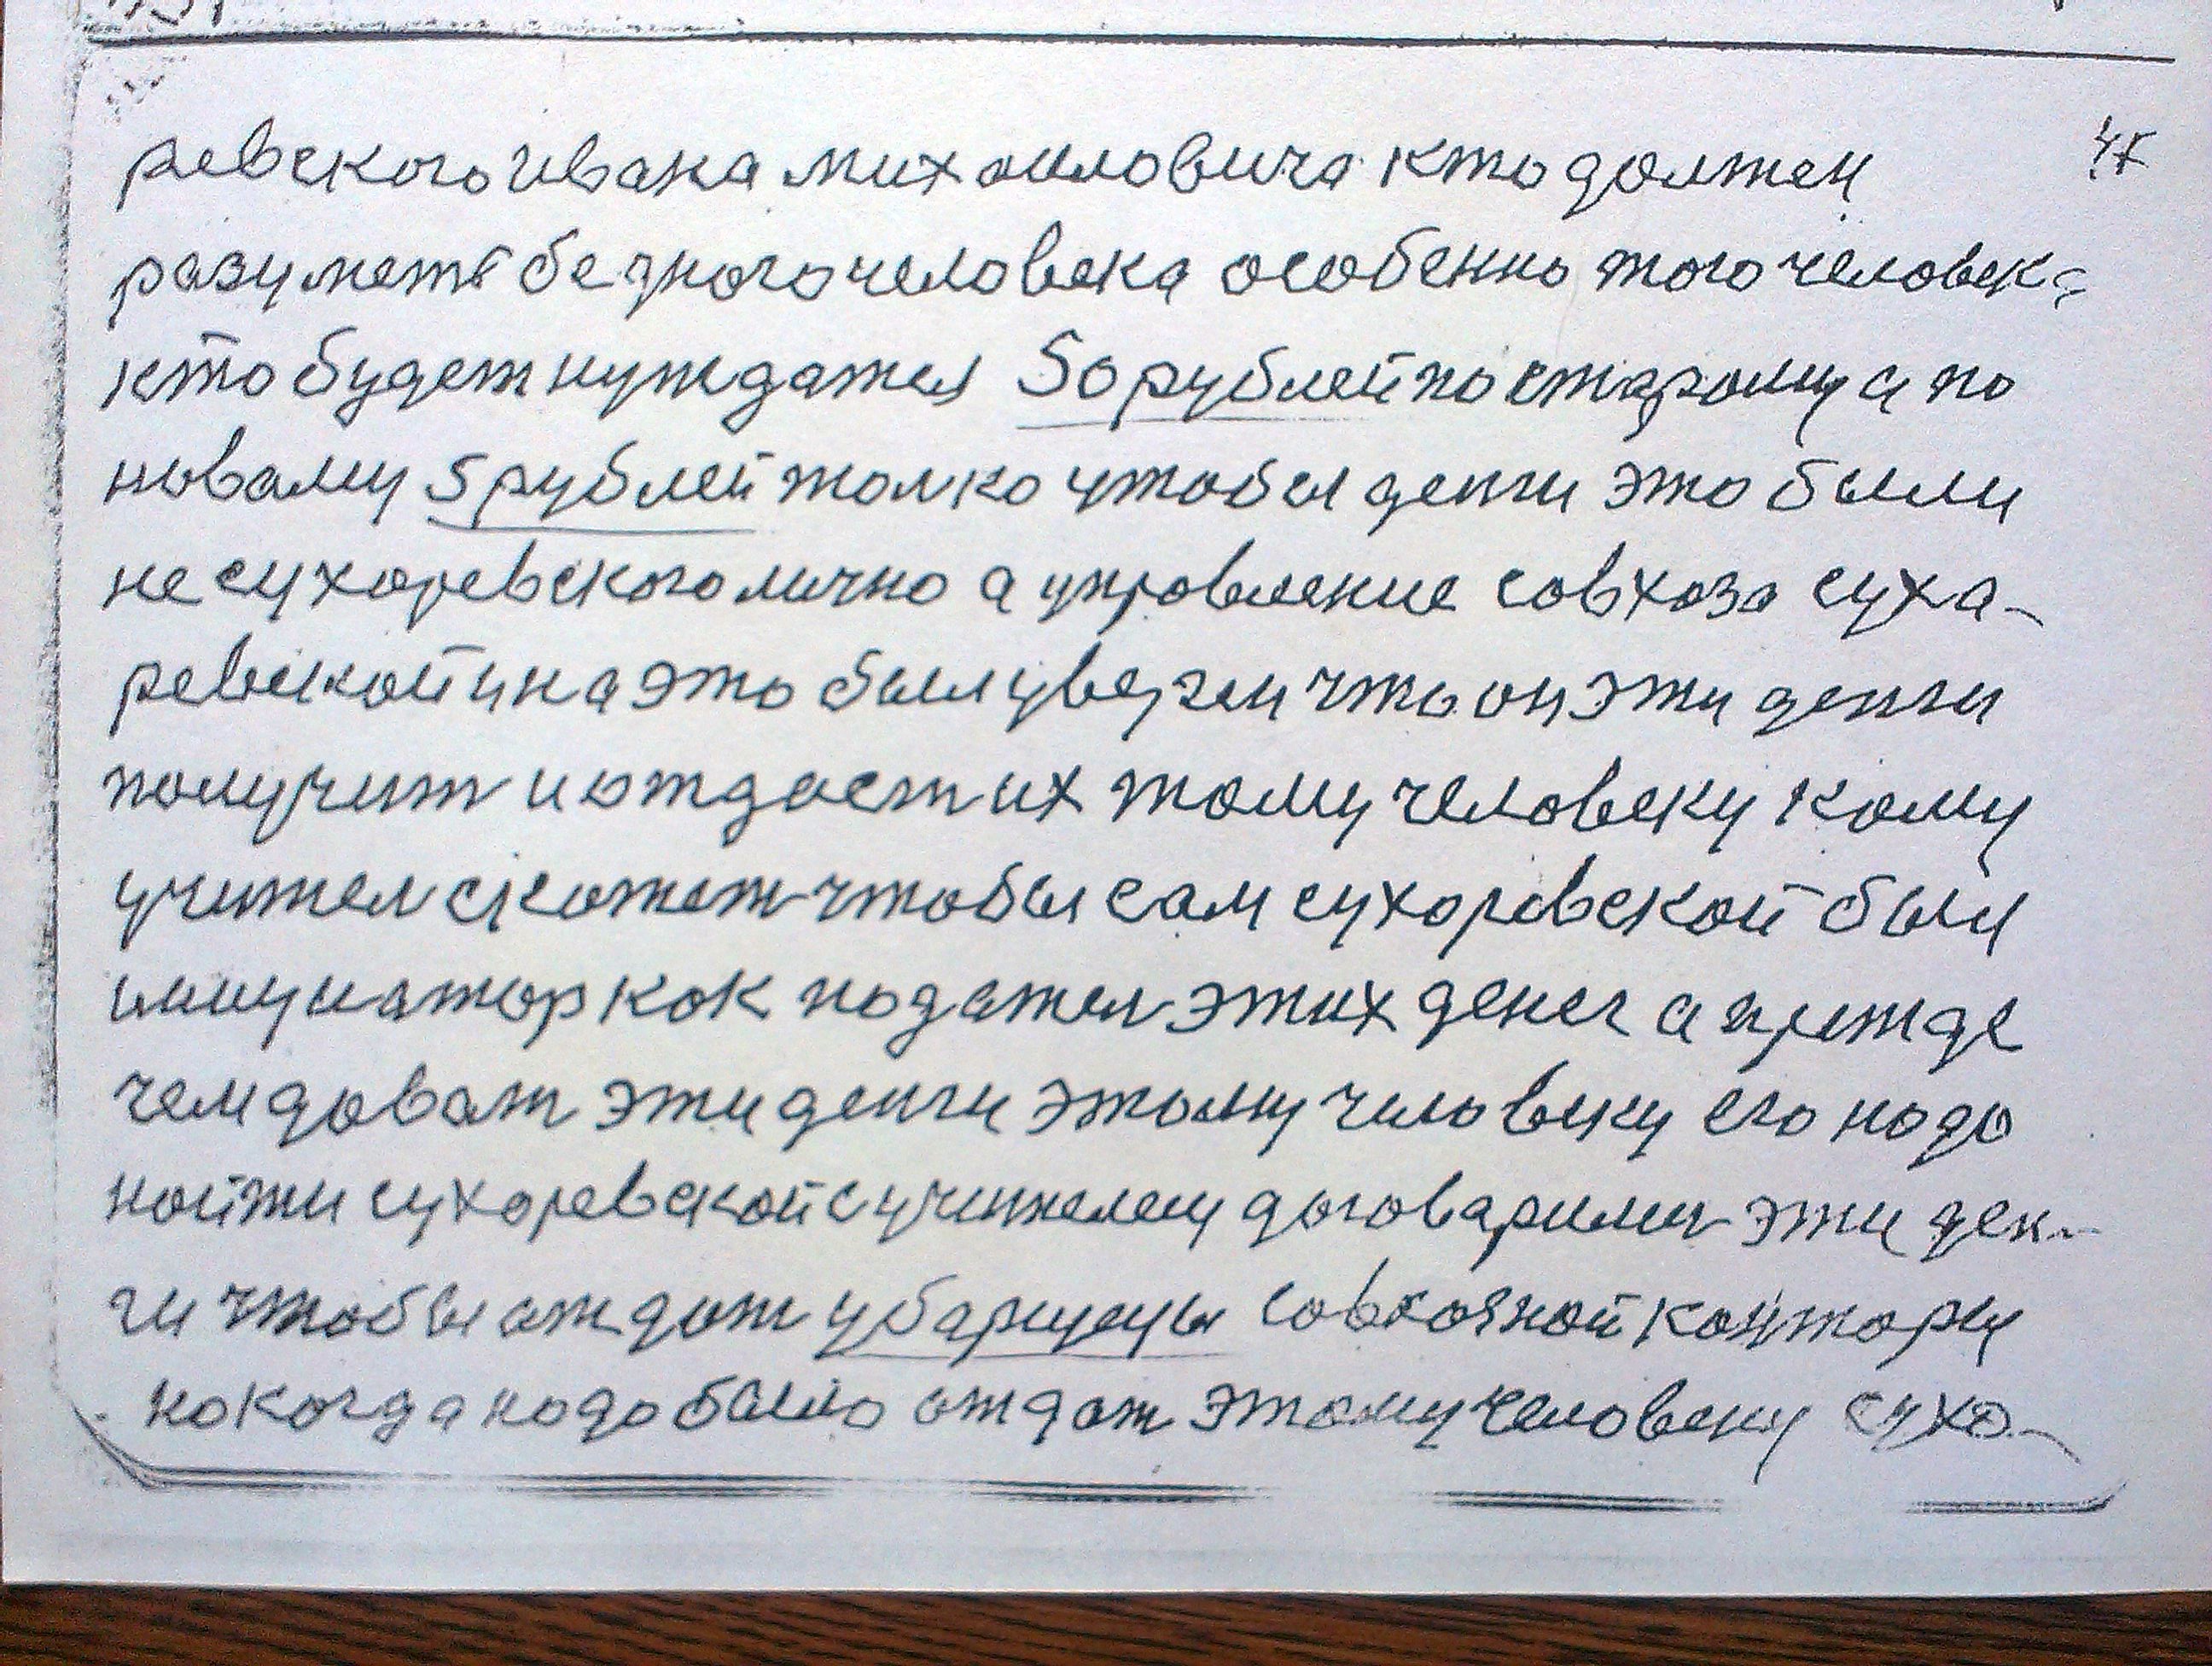 ревского ивана михаиловича кто должен
разуметь бедного человека особенно того человека
кто будет нуждатся 50 рублей по старому а по
новаму 5 рублей толко чтобы денги это были
не сухоревского лично а упровление совхоза суха-
ревской и на это был уверен что он эти денги
получит и отдаст их тому человеку кому
учител скожет чтобы сам сухоревской был
кок подател этих денег а прежде
чем доват эти денги этому человеку его надо
нойти сухоревской с учителем договарили эти ден-
ги чтобы отдат у совхозной конторы
но когда надо было отдат этому человеку сухо-